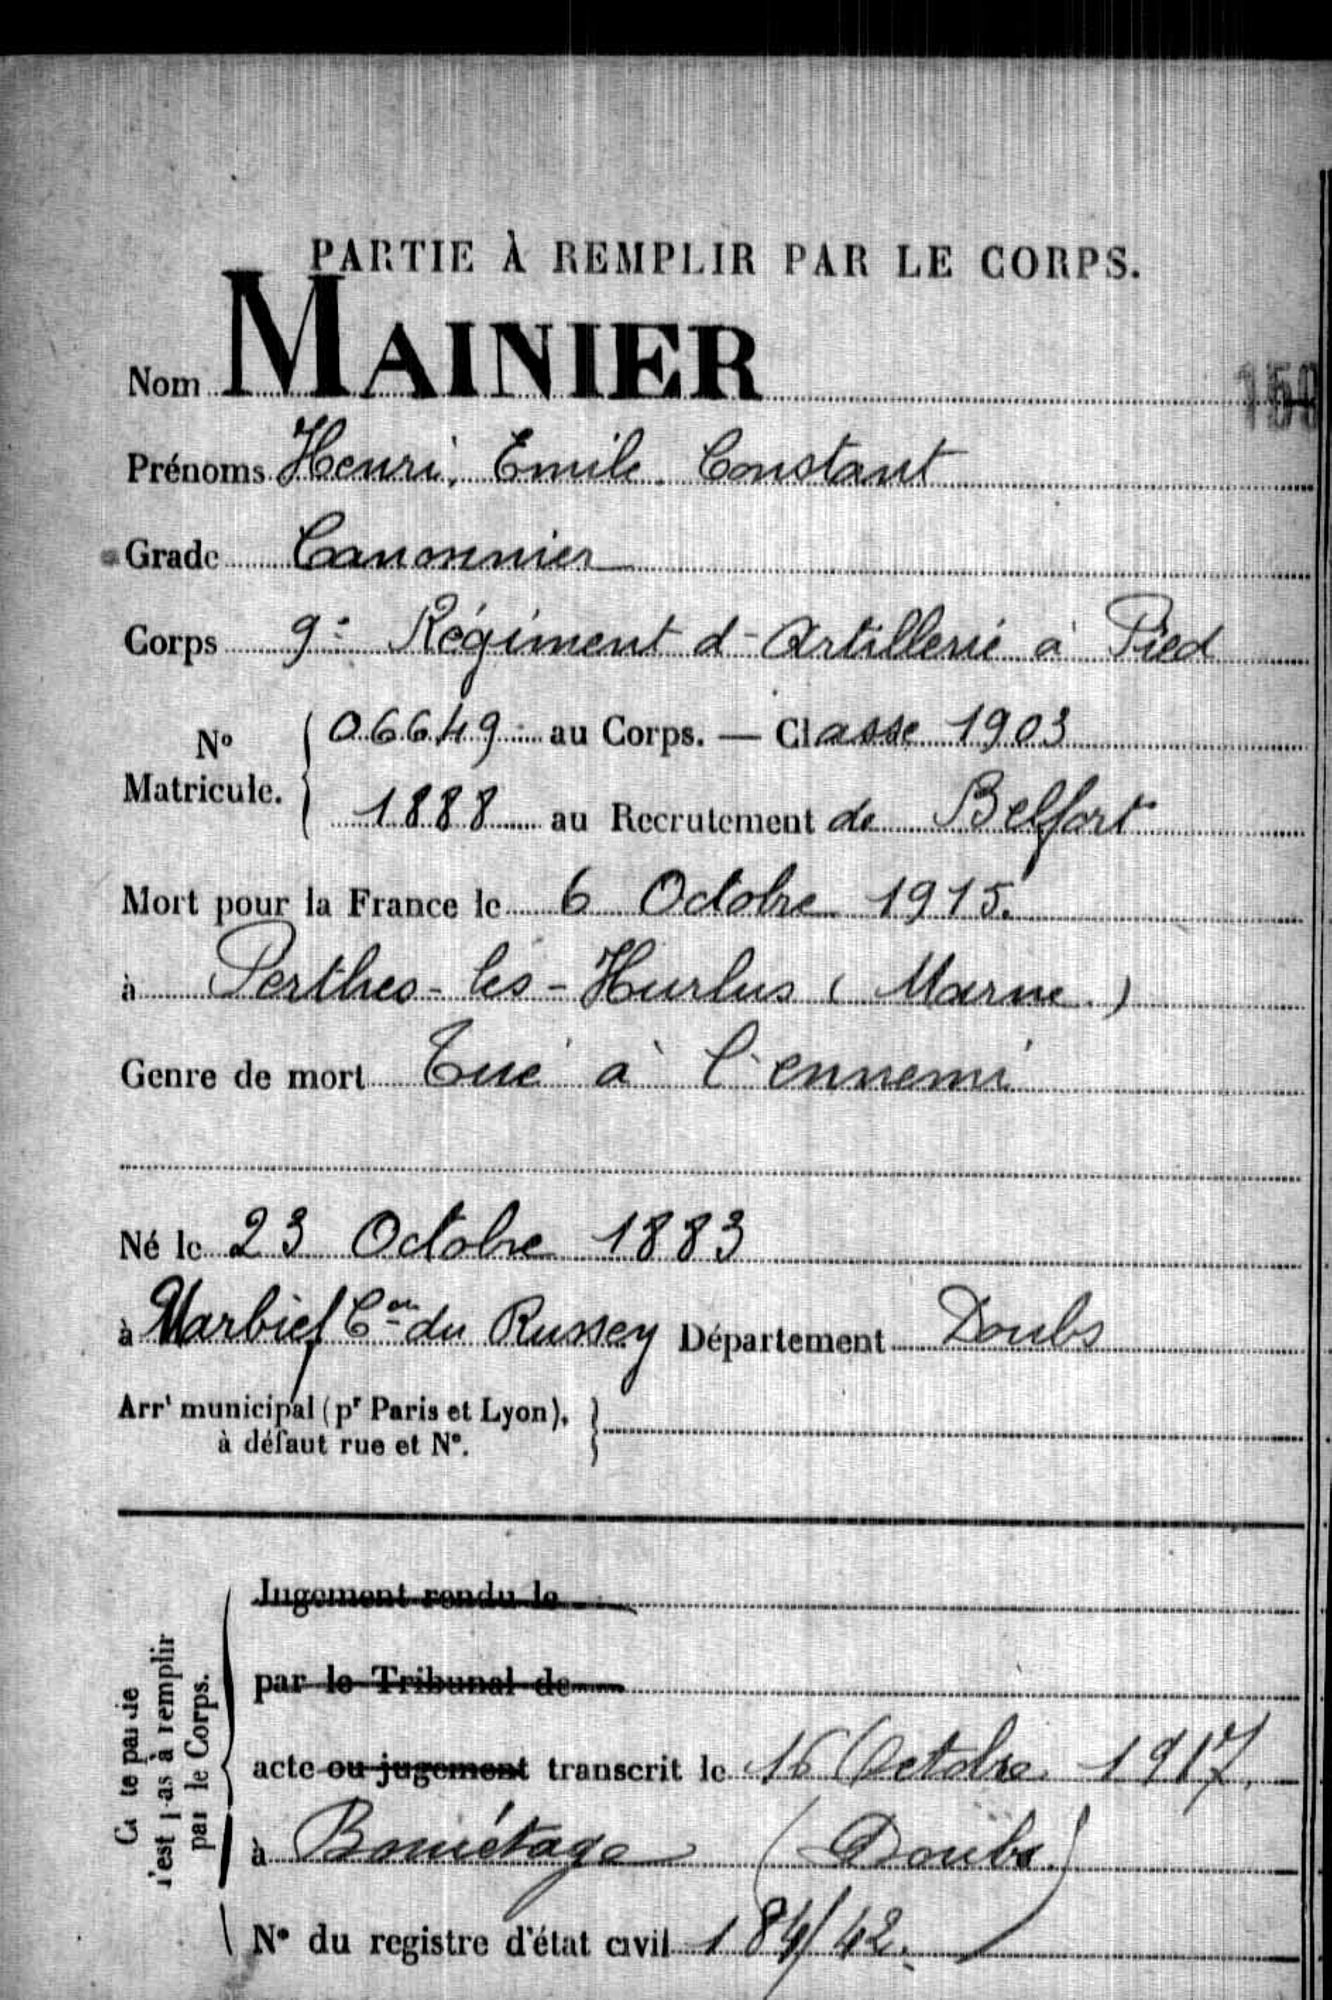 PARTIE À REMPLIR PAR LE CORPS.
Nom MAINIER
Prénoms Henri, Emile Constant
Grade Canonnier
Corps 9e Régiment d'Artillerie à Pied
No Matricule. 06649 au Corps. — Classe 1903
1888 au Recrutement de Belfort
Mort pour la France le 6 Octobre 1915.
à Perthes-lès-Hurlus (Marne)
Genre de mort Tué à l'ennemi
Né le 23 Octobre 1883
à Narbief Con du Russey Département Doubs
Arrt municipal (pr Paris et Lyon),
à défaut rue et No.
Jugement rendu le
par le Tribunal de
acte ou jugement transcrit le 16 Octobre 1917.
à Bonnétage (Doubs)
No du registre d'état civil 184/42.
Cette partie
n'est pas à remplir
par le Corps.